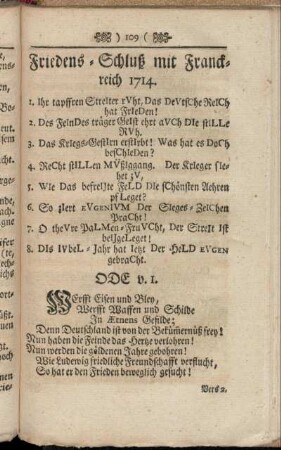 ) 109 (
Friedens-Schluß mit Franck-
reich 1714.
1. Ihr tapffren StreIter rVht, Das DeVtsChe ReICh
hat FrIeDen!
2. Des FeInDes träger GeIst ehrt aVCh DIe stILLe
RVh.
3. Das KrIegs-GestIrn erstIrbt! Was hat es DoCh
besChIeDen?
4. ReCht stILLen MVßIggang. Der KrIeger sIe-
het zV,
5. WIe Das befreIte FeLD DIe sChönsten Aehren
pfLeget?
6. So zIert EVGENIVM Der SIeges-ZeIChen
PraCht!
7. O theVre PaLMen-FruVCht, Der StreIt Ist
beIgeLeget!
8. DIs IVbeL-Jahr hat Ietzt Der HeLD EVGEN
gebraCht.
ODE v. I.
Werfft Eisen und Bley,
Werfft Waffen und Schilde
In Ætnens Gefilde;
Denn Deutschland ist von der Bekümmernüß frey!
Nun haben die Feinde das Hertze verlohren!
Nun werden die göldenen Jahre gebohren!
Wie Ludewig friedliche Freundschafft versucht,
So hat er den Frieden beweglich gesucht!
Vers 2.